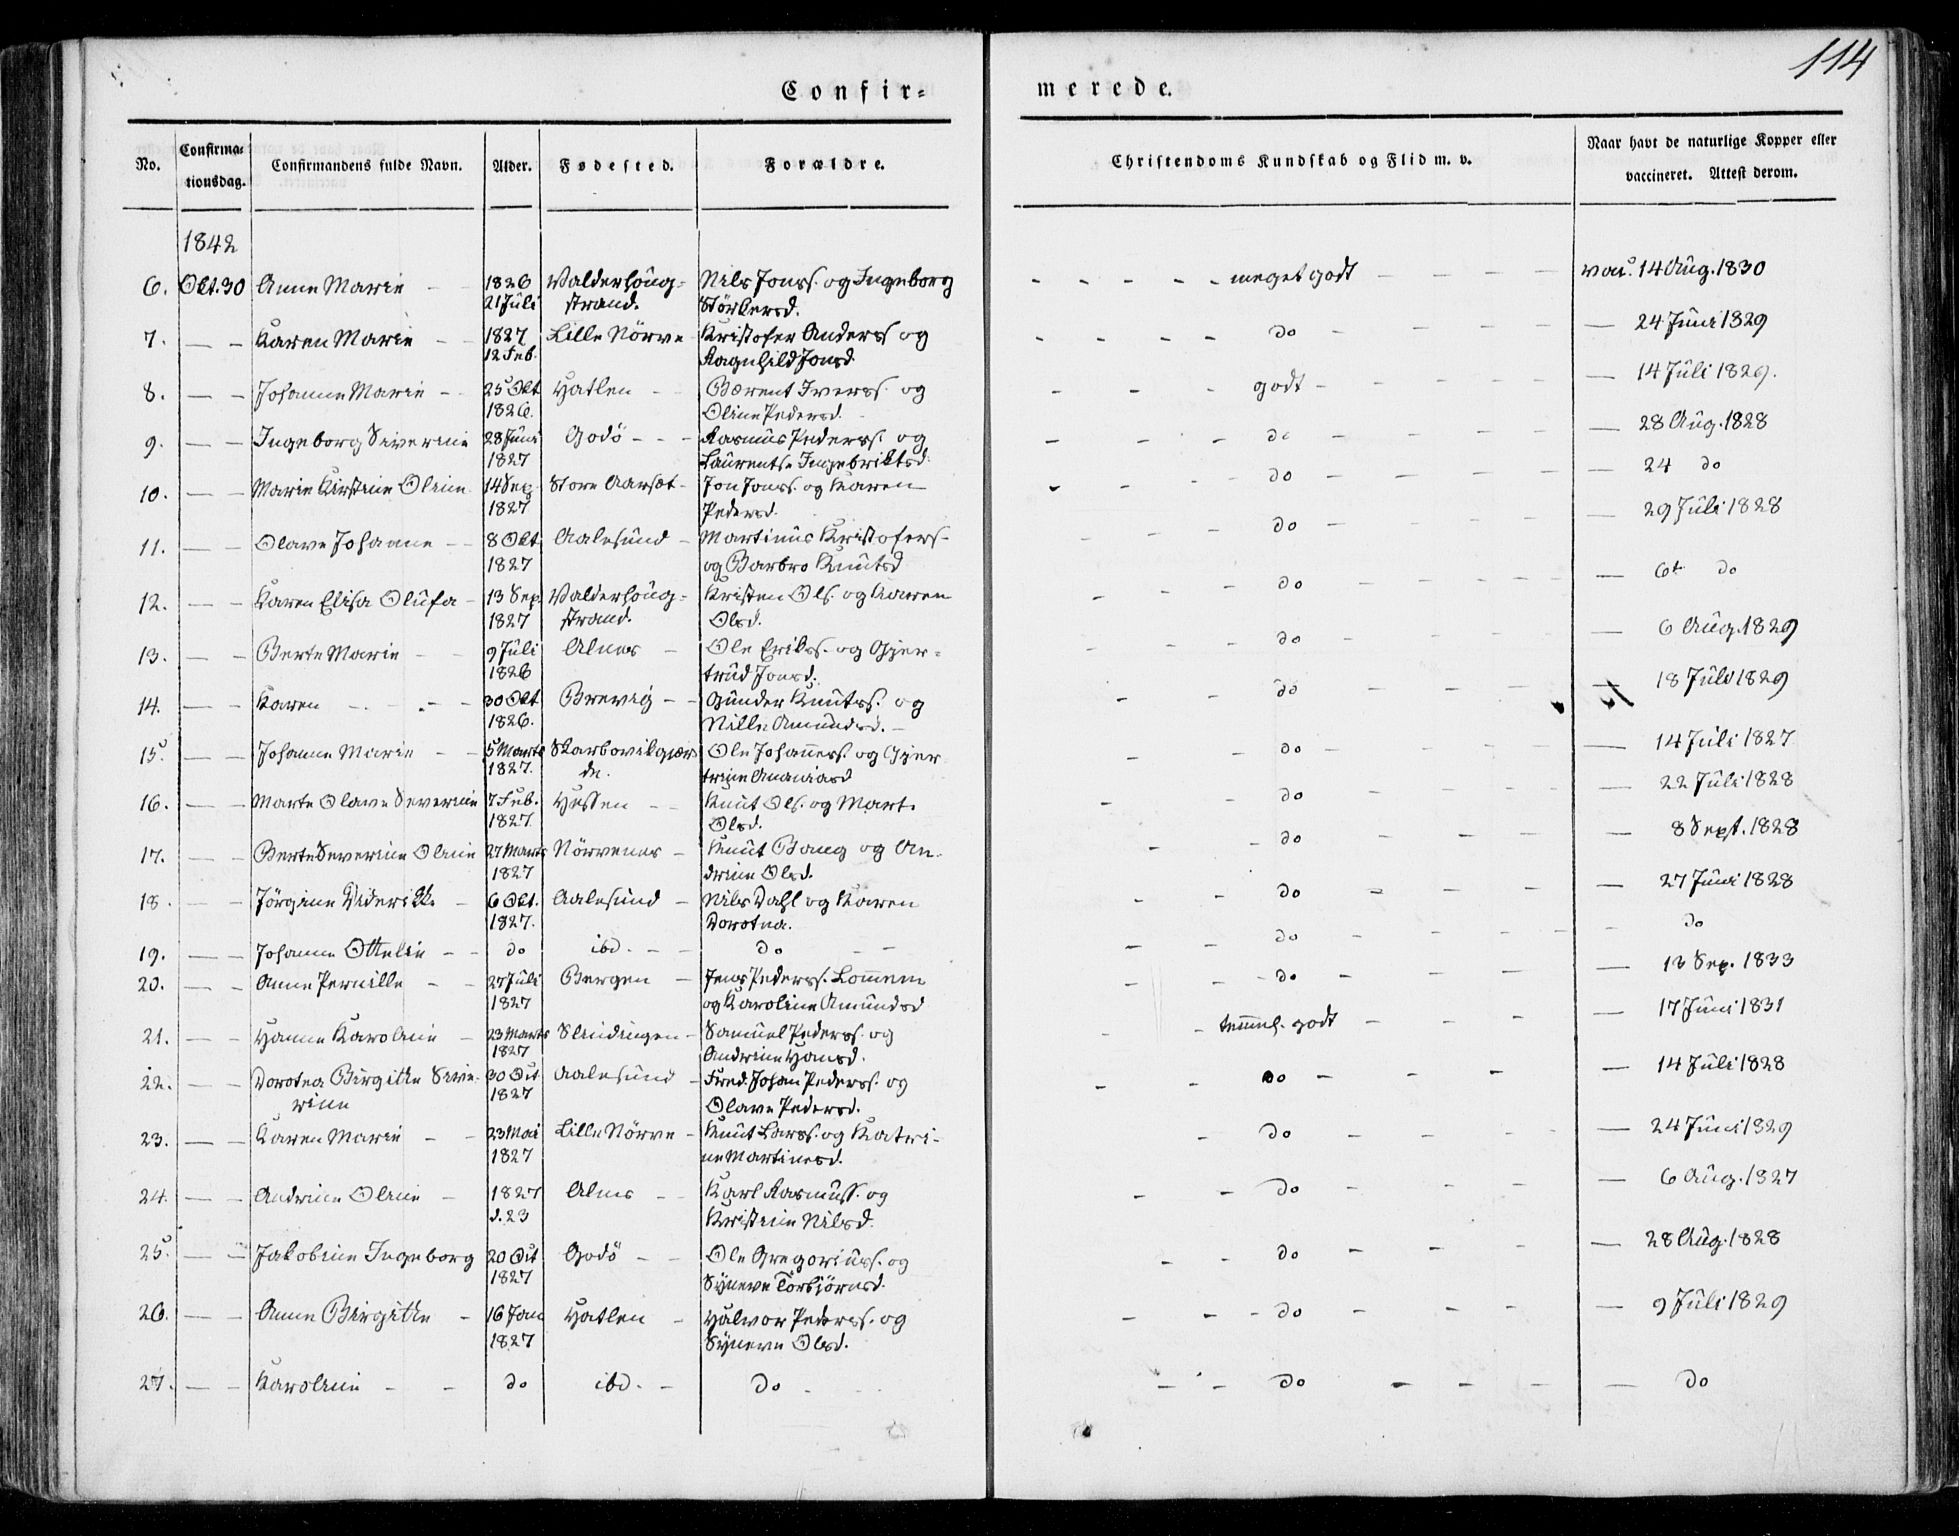 114
Confirmerede.
No. Confirmationsdag. Confirmandens fulde Navn. Alder. Fødested. Forældre. Christendoms Kundskab og Flid m. v. Naar havt de naturlige Kopper eller vaccineret. Attest derom.
1842
6. Okt. 30 Anne Marie - - 1826 21 Juli Valderhoug-strand. Nils Jonss. og Ingeborg Störkersd. - - - - - meget godt - - - - vac. 14 Aug. 1830
7. - - Karen Marie - - 1827 12 Feb. Lille Nörve - Kristofer Anderss og Ragnhild Jonsd. - - - - do - - - - - 24 Juni 1829
8. - - Johanne Marie - - 25 Okt 1826. Hatlen - - Bærent Iverss. og Oline Pedersd. - - - godt - - - - - - 14 Juli 1829.
9. - - Ingeborg Siverine 28 Juni 1827 Godö - - - Rasmus Pederss. og Laurentse Ingebriktsd. - - - do - - - - - 28 Aug. 1828
10. - - Marie Kirstine Oline 14 Sep. 1827 Store Aarsæt - Jon Jonss. og Karen Pedersd. - - - do - - - - - 24 do
11. - - Olave Johanne - - 8 Okt 1827 Aalesund - Martinus Kristofers- og Barbro Knutsd - - do - - - - - 29 Juli 1828
12. - - Karen Elisa Olufa - 13 Sep. 1827 Valderhoug-strand. Kristen Ols. og Karen Olsd. - - do - - - - - 6t do
13. - - Berte Marie - - 9 Juli 1826 Alnes - Ole Erikss. og Gjer-trud Jonsd. - - - do - - - - - 6 Aug. 1829
14. - - Karen - - - - 30 Okt 1826. Brevig - - Gunder Knutss. og Nille Amundsd. - - - do - - - - 18 Juli 1829
15. - - Johanne Marie - - 5 Marts 1827. Skarbovikgjær-de. Ole Johanness. og Gjer-trine Ananiasd - - do - - - - - 14 Juli 1827
16. - - Marte Olave Severine 7 Feb. 1827. Hessen - - Knut Ols. og Mart. Olsd. - - do - - - - - 22 Juli 1828
17. - - Berte Severine Oline 27 Marts 1827 Nörvenes - Knut Boug og An-drine Olsd. - - do - - - - 8 Sept. 1828
18. - - Jörgine Diderikke - 6 Okt. 1827. Aalesund - Nils Dahl og Karen Dorotea. - - do - - - - - 27 Juni 1828
19. - - Johanne Ottelie - - do ibd. - - do - - - - do - - - - - do
20. - - Anne Pernille - - 27 Juli 1827 Bergen - Jens Pederss. Lommem og Karoline Amundsd - - - do - - - - - 13 Sep. 1833
21. - - Hanne Karoline - 23 Marts 1827 Slindingen - Samuel Pederss. og Andrine Hansd. - - temmel. godt - - - - 17 Juni 1831
22. - - Dorotea Birgitte Seve-rine 30 Oct 1827 Aalesund - Fred. Johan Pederss. og Olave Pedersd. - - do - - - - 14 Juli 1828
23. - - Karen Marie - - 23 Mai 1827 Lille Nörve - Knut Larss. og Katri-ne Martinesd. - do - - - - - 24 Juni 1829
24. - - Andrine Oline - 1827 d. 23 Alnes - - Karl Rasmuss. og Kristine Nilsd. - - do - - - - 6 Aug. 1827
25. - - Jakobine Ingeborg 20 Oct 1827 Godö - - Ole Gregoriuss. og Syneve Torbjörnsd. - - do - - - - 28 Aug. 1828
26. - - Anne Birgitte - 16 Jan 1827 Hatlen - Halvor Pederss. og Syneve Olsd. - - - do - - - - 9 Juli 1829
27. - - Karoline - - do ibd. - - do - - - do - - - - - do